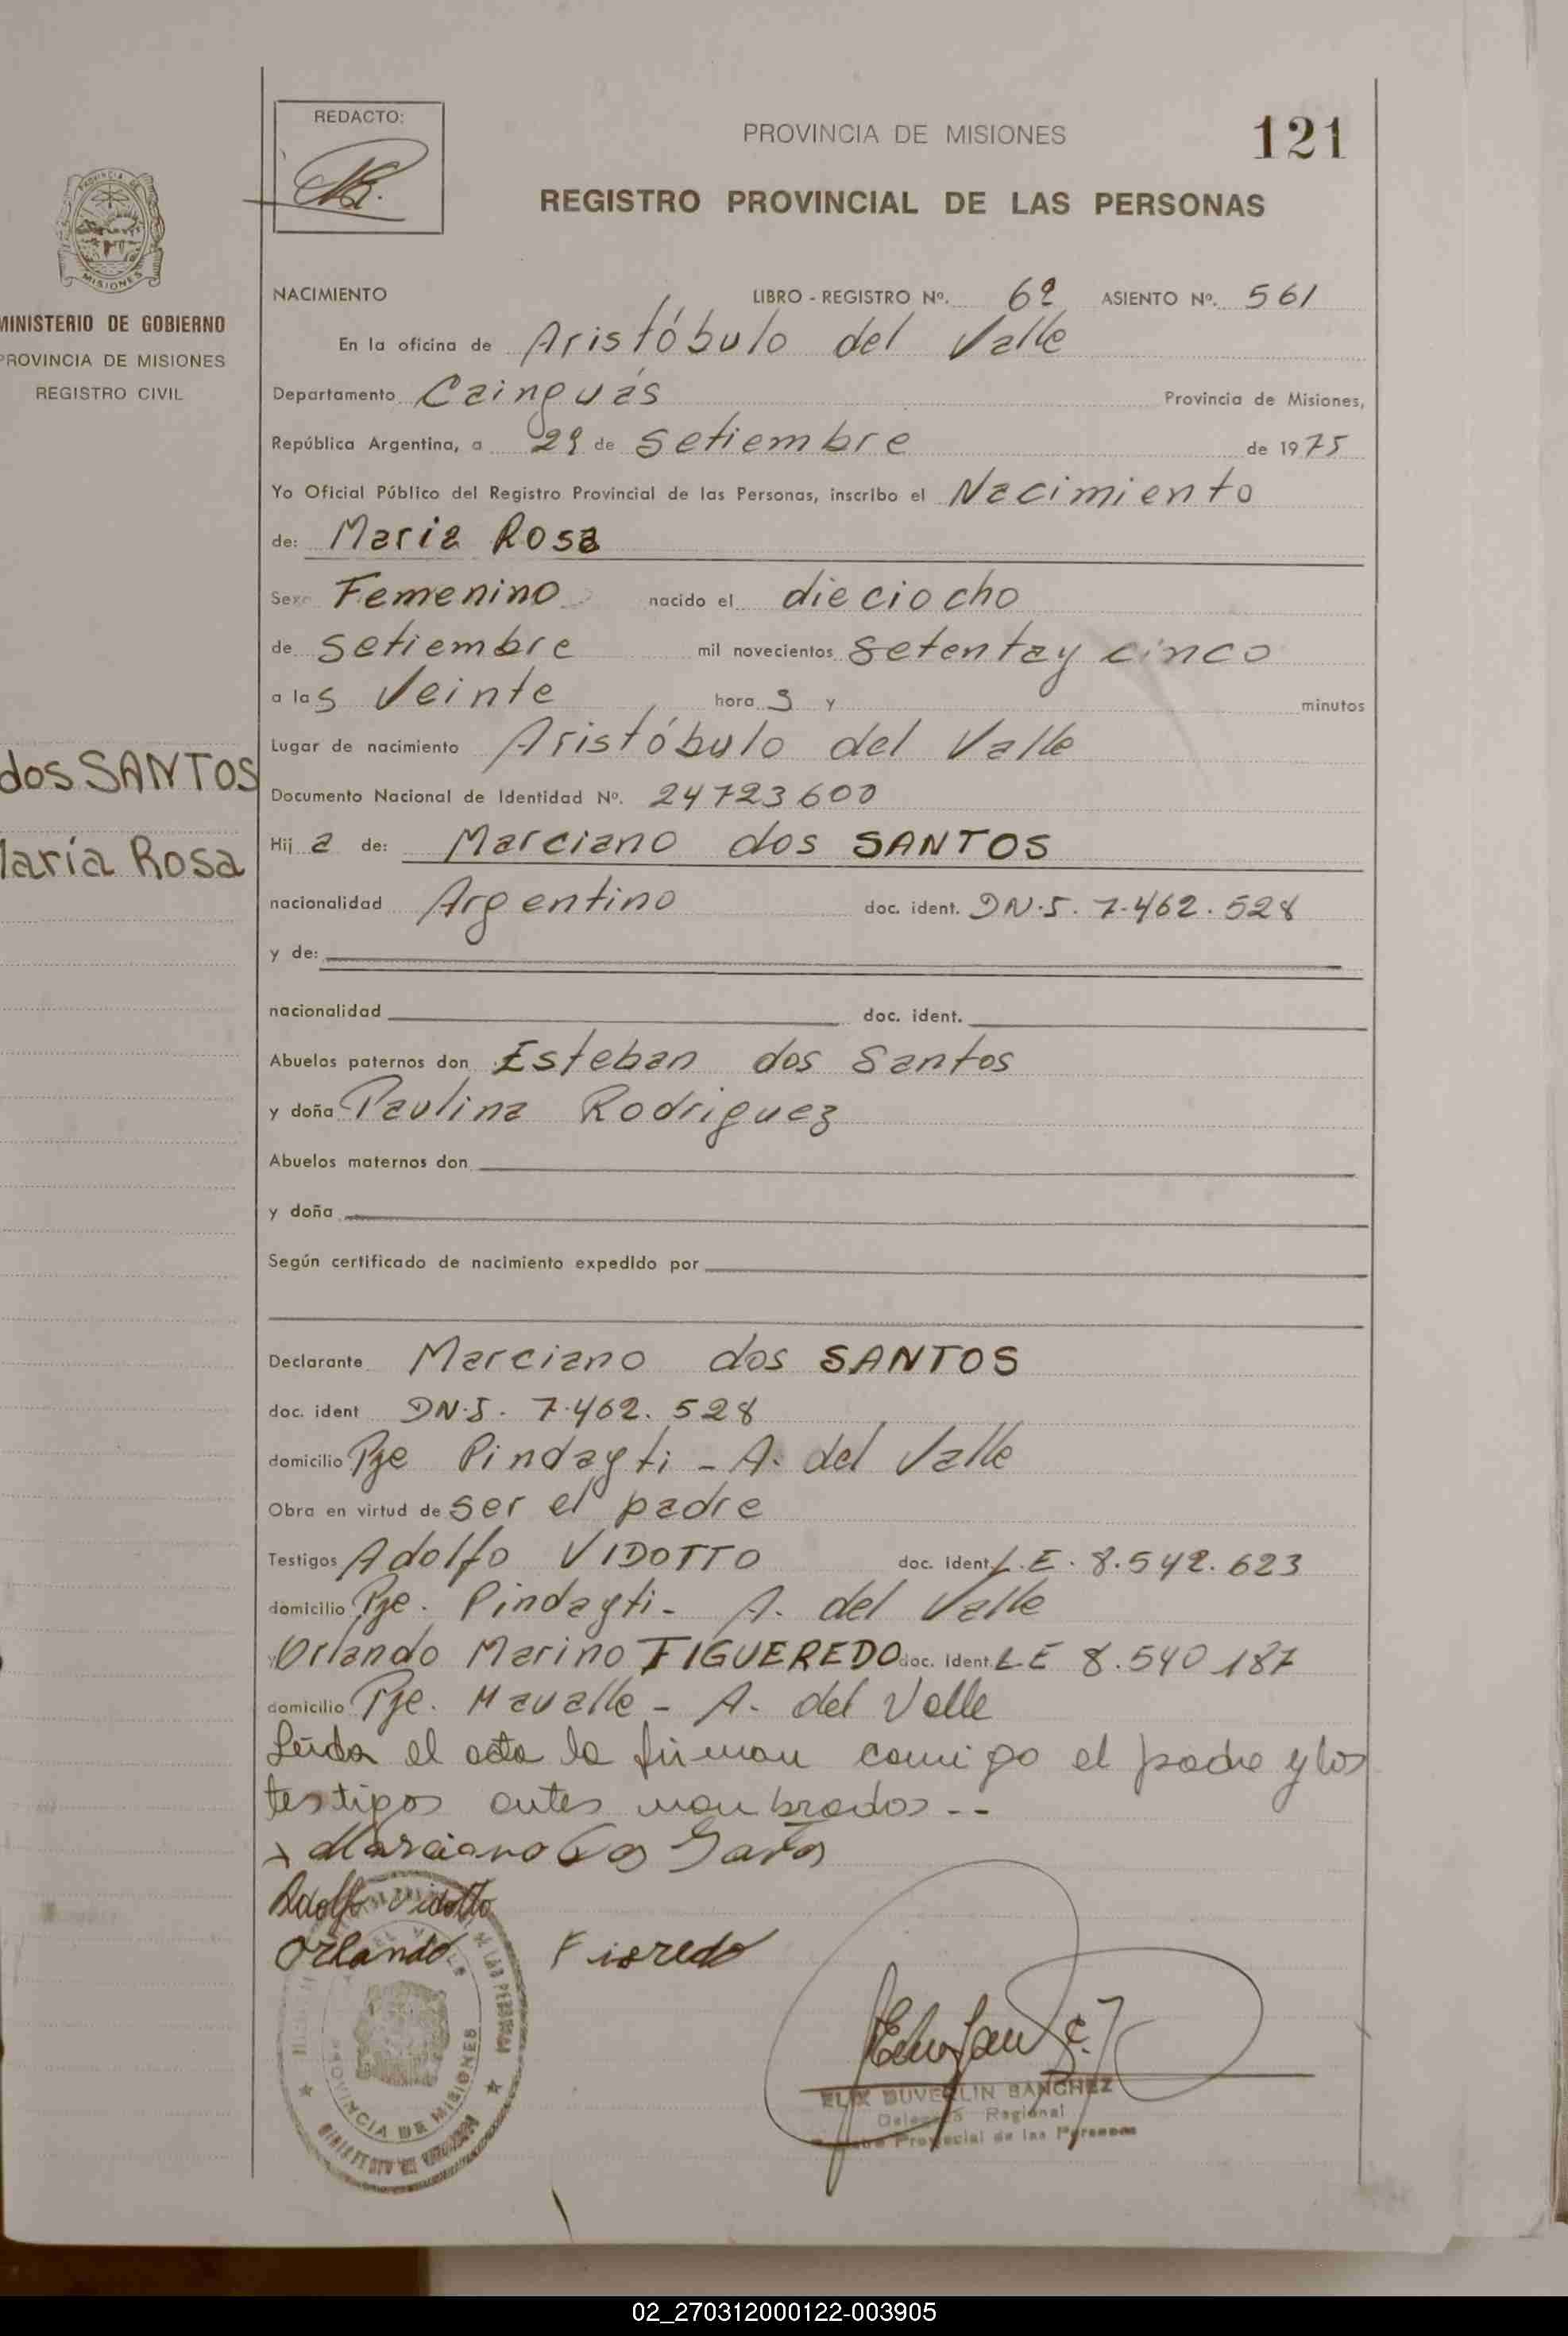 REDACTO:
PROVINCIA DE MISIONES
121
REGISTRO PROVINCIAL DE LAS PERSONAS
MISIONES
MINISTERIO DE GOBIERNO
PROVINCIA DE MISIONES
REGISTRO CIVIL
NACIMIENTO LIBRO - REGISTRO Nº. 6º ASIENTO Nº. 561
En la oficina de Aristóbulo del Valle
Departamento Cainguás Provincia de Misiones,
República Argentina, a 29 de Setiembre de 1975
Yo Oficial Público del Registro Provincial de las Personas, inscribo el Nacimiento
de: Maria Rosa
Sexo Femenino nacido el dieciocho
de Setiembre mil novecientos setenta y cinco
a las Veinte horas y minutos
Lugar de nacimiento Aristóbulo del Valle
dos SANTOS
Documento Nacional de Identidad Nº. 24723600
María Rosa
Hija de: Marciano dos SANTOS
nacionalidad Argentino doc. ident. DN.I. 7.462.528
y de:
nacionalidad doc. ident.
Abuelos paternos don Esteban dos Santos
y doña Paulina Rodriguez
Abuelos maternos don
y doña
Según certificado de nacimiento expedido por
Declarante Marciano dos SANTOS
doc. ident DN.I. 7.462.528
domicilio Pje Pindayti - A. del Valle
Obra en virtud de ser el padre
Testigos Adolfo VIDOTTO doc. ident. L.E. 8.542.623
domicilio Pje. Pindayti - A. del Valle
y Orlando Marino FIGUEREDO doc. ident. LE 8.540.187
domicilio Pje. Mavalle - A. del Valle
Leida el acta la firman comigo el padre y los
testigos antes nombrados --
x Marciano dos Santos
Adolfo Vidotto
Orlando Fioredo
PROVINCIA DE MISIONES
SANCHEZ
Delegado Regional
Provincial de las Personas
02_270312000122-003905